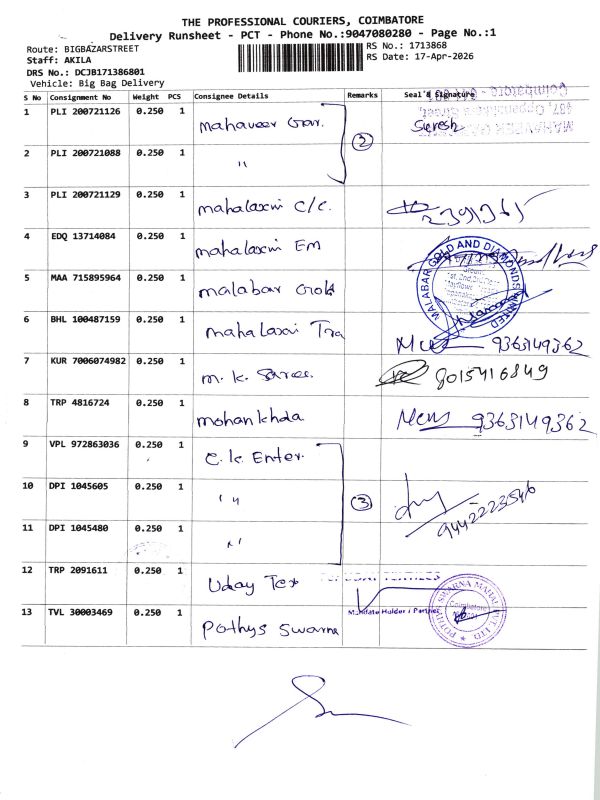 THE PROFESSIONAL COURIERS, COIMBATORE
Delivery Runsheet - PCT - Phone No.:9047080280 - Page No.:1
Route: BIGBAZARSTREET
RS No.: 1713868
Staff: AKILA
RS Date: 17-Apr-2026
DRS No.: DCJB171386801
Vehicle: Big Bag Delivery
S No Consignment No Weight PCS Consignee Details Remarks Seal & Signature
1 PLI 200721126 0.250 1 mahaveer Suresh
2 PLI 200721088 0.250 1 " 2
3 PLI 200721129 0.250 1 mahalaxmi C/c.
4 EDQ 13714084 0.250 1 mahalaxmi Em
5 MAA 715895964 0.250 1 malabar Gold MALABAR GOLD AND DIAMONDS LIMITED
6 BHL 100487159 0.250 1 mahalaxmi Tra 9363149362
7 KUR 7006074982 0.250 1 m.k. Sarees. 8015416849
8 TRP 4816724 0.250 1 mohankhda 9363149362
9 VPL 972863036 0.250 1 C.K. Enter.
10 DPI 1045605 0.250 1 " 3 9442223546
11 DPI 1045480 0.250 1 "
12 TRP 2091611 0.250 1 Uday Tex
13 TVL 30003469 0.250 1 Pothys Swarna Mandate Holder / Partner POTHYS SWARNA MAHAL PVT LTD Coimbatore